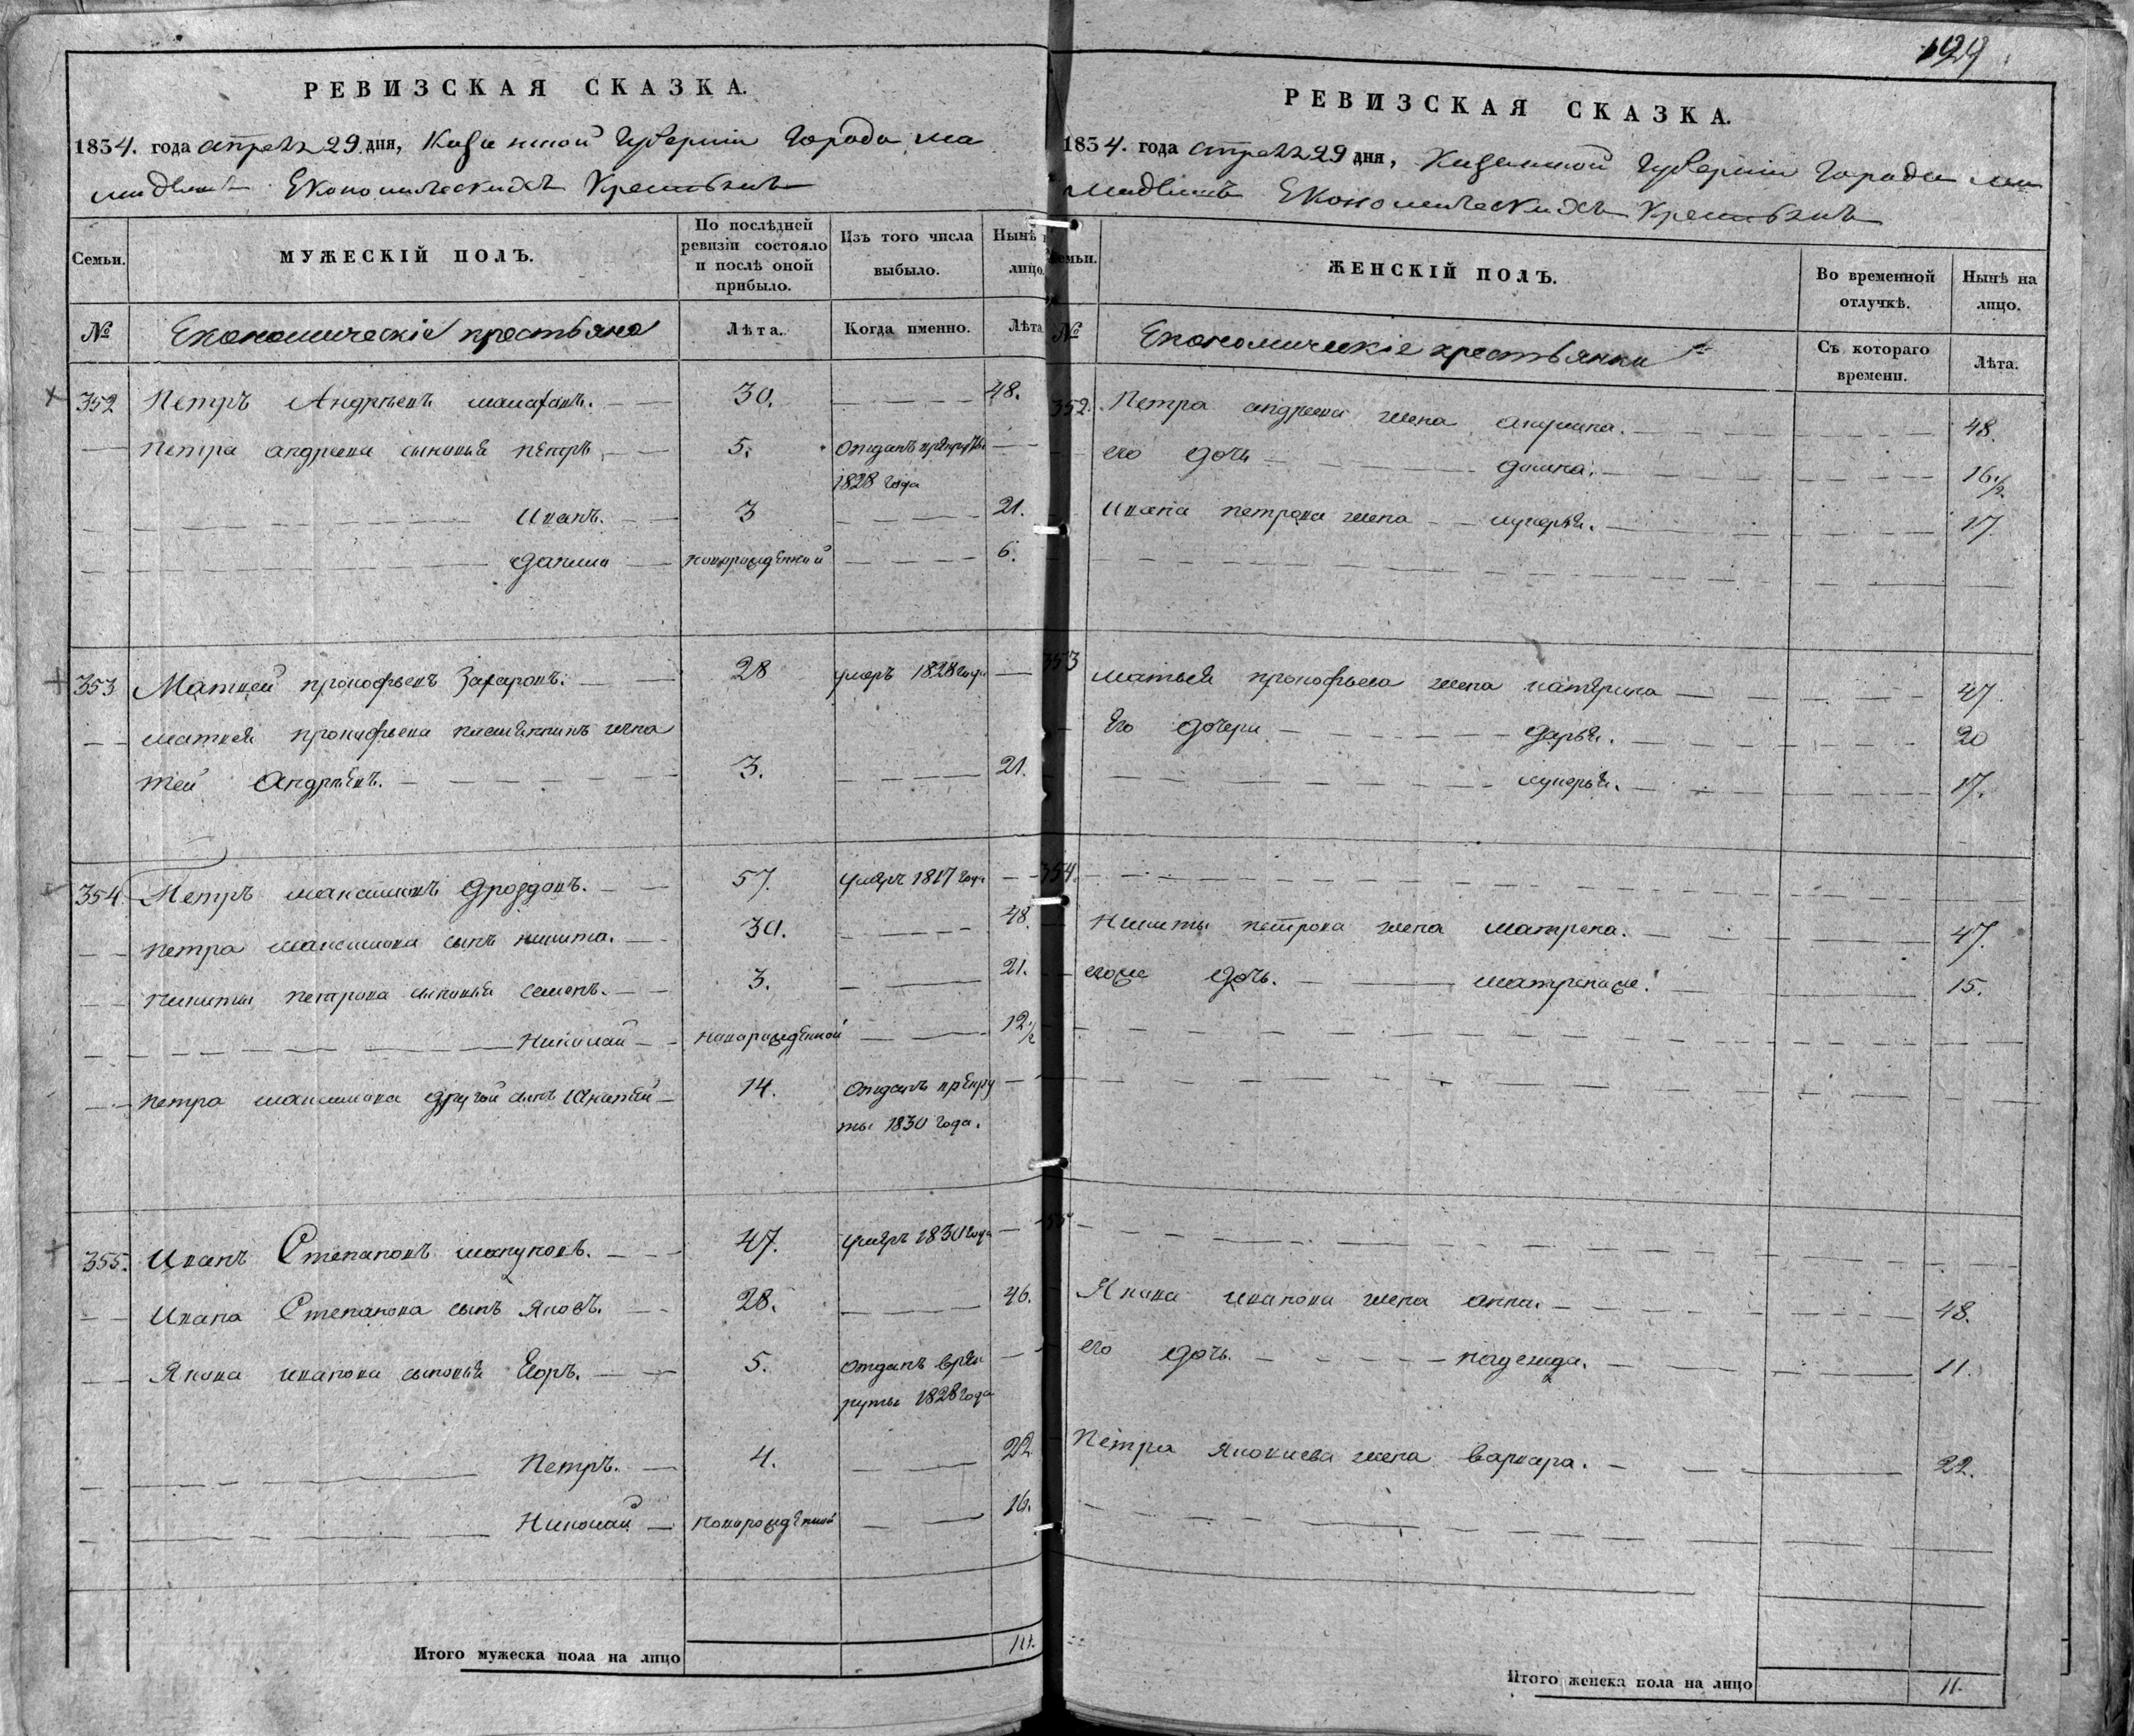 129
РЕВИЗСКАЯ СКАЗКА.
1834. года апреля 29 дня, Казанской Губернiи Города Ма
мадыша Економическихъ Крестьянъ
Семьи. МУЖЕСКІЙ ПОЛЪ. По послѣдней ревизіи состояло и послѣ оной прибыло. Изъ того числа выбыло. Нынѣ на лицо.
№ Економическіе крестьяне Лѣта. Когда именно. Лѣта
352 Петръ Андреевъ 30. 48.
Петра андреева сыновья петръ 5. отданъ
1828 года
Иванъ. 3 21.
данило новорожденной 6.
353 Матвей прокофьевъ Захаровъ. 28 умеръ 1828 года
матвея прокофьева племянникъ игна
тей Андреевъ. 3. 21.
354 Петръ максимовъ Дроздовъ. 57. умеръ 1817 года
петра максимова сынъ никита. 30. 48.
никиты петрова сыновья семенъ. 3. 21.
Николай новорожденной 12 1/2
петра максимова другой сынъ 14. отданъ врекру
ты 1830 года.
355. Иванъ Степановъ 47. умеръ 1830 года
Ивана Степанова сынъ яковъ. 28. 46.
Якова иванова сыновья Егоръ. 5. отданъ врек
руты 1828 года
Петръ. 4. 22
Николай новорожденной 16.
Итого мужеска пола на лицо 10.
РЕВИЗСКАЯ СКАЗКА.
1834. года апреля 29 дня, Казанской Губернiи Города Ма
мадыша Економическихъ Крестьянъ
Семьи. ЖЕНСКІЙ ПОЛЪ. Во временной отлучкѣ. Нынѣ на лицо.
№ Економическіе крестьянки Съ котораго времени. Лѣта.
352. Петра андреева жена акулина. 48.
его дочь домна. 16 1/2.
Ивана петрова жена лукерья. 17.
353 матвея прокофьева жена катерина 47
Его дочери дарья. 20
лукерья. 17.
354.
Никиты петрова жена матрена. 47.
егоже дочь. матренаже. 15.
355
Якова иванова жена анна. 48.
его дочь. надежда. 11.
Петра яковлева жена варвара. 22.
Итого женска пола на лицо 11.